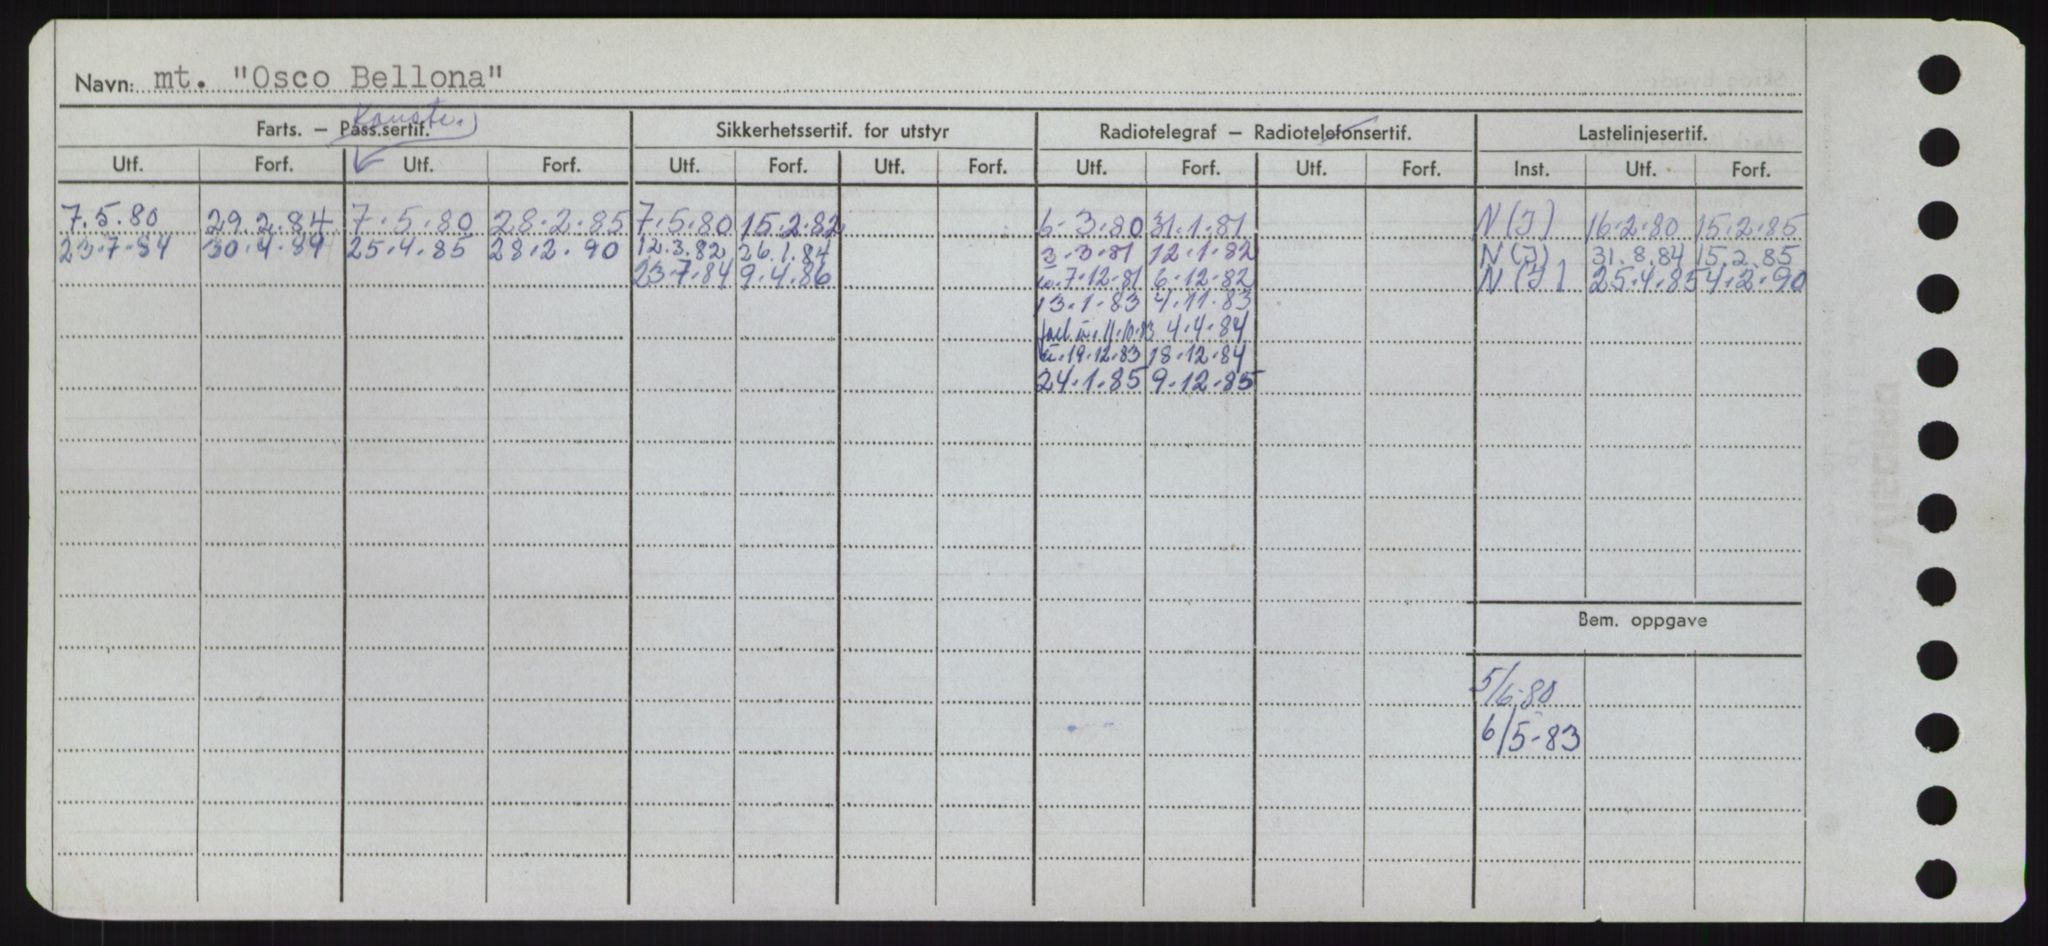 Navn: mt. "Osco Bellona"
Konstr.
Farts. — Pass.sertif. Sikkerhetssertif. for utstyr Radiotelegraf — Radiotelefonsertif. Lastelinjesertif.
Utf. Forf. Utf. Forf. Utf. Forf. Utf. Forf. Utf. Forf. Utf. Forf. Inst. Utf. Forf.
7.5.80 29.2.84 7.5.80 28.2.85 7.5.80 15.2.82 6.3.80 31.1.81 N(I) 16.2.80 15.2.85
23.7.84 30.4.89 25.4.85 28.2.90 12.3.82 26.1.84 3.3.81 12.1.82 N(I) 31.8.84 15.2.85
23.7.84 9.4.86 7.12.81 6.12.82 N(I) 25.4.85 4.2.90
13.1.83 4.11.83
11.10.83 4.4.84
19.12.83 18.12.84
24.1.85 9.12.85
Bem. oppgave
5/6-80
6/5-83